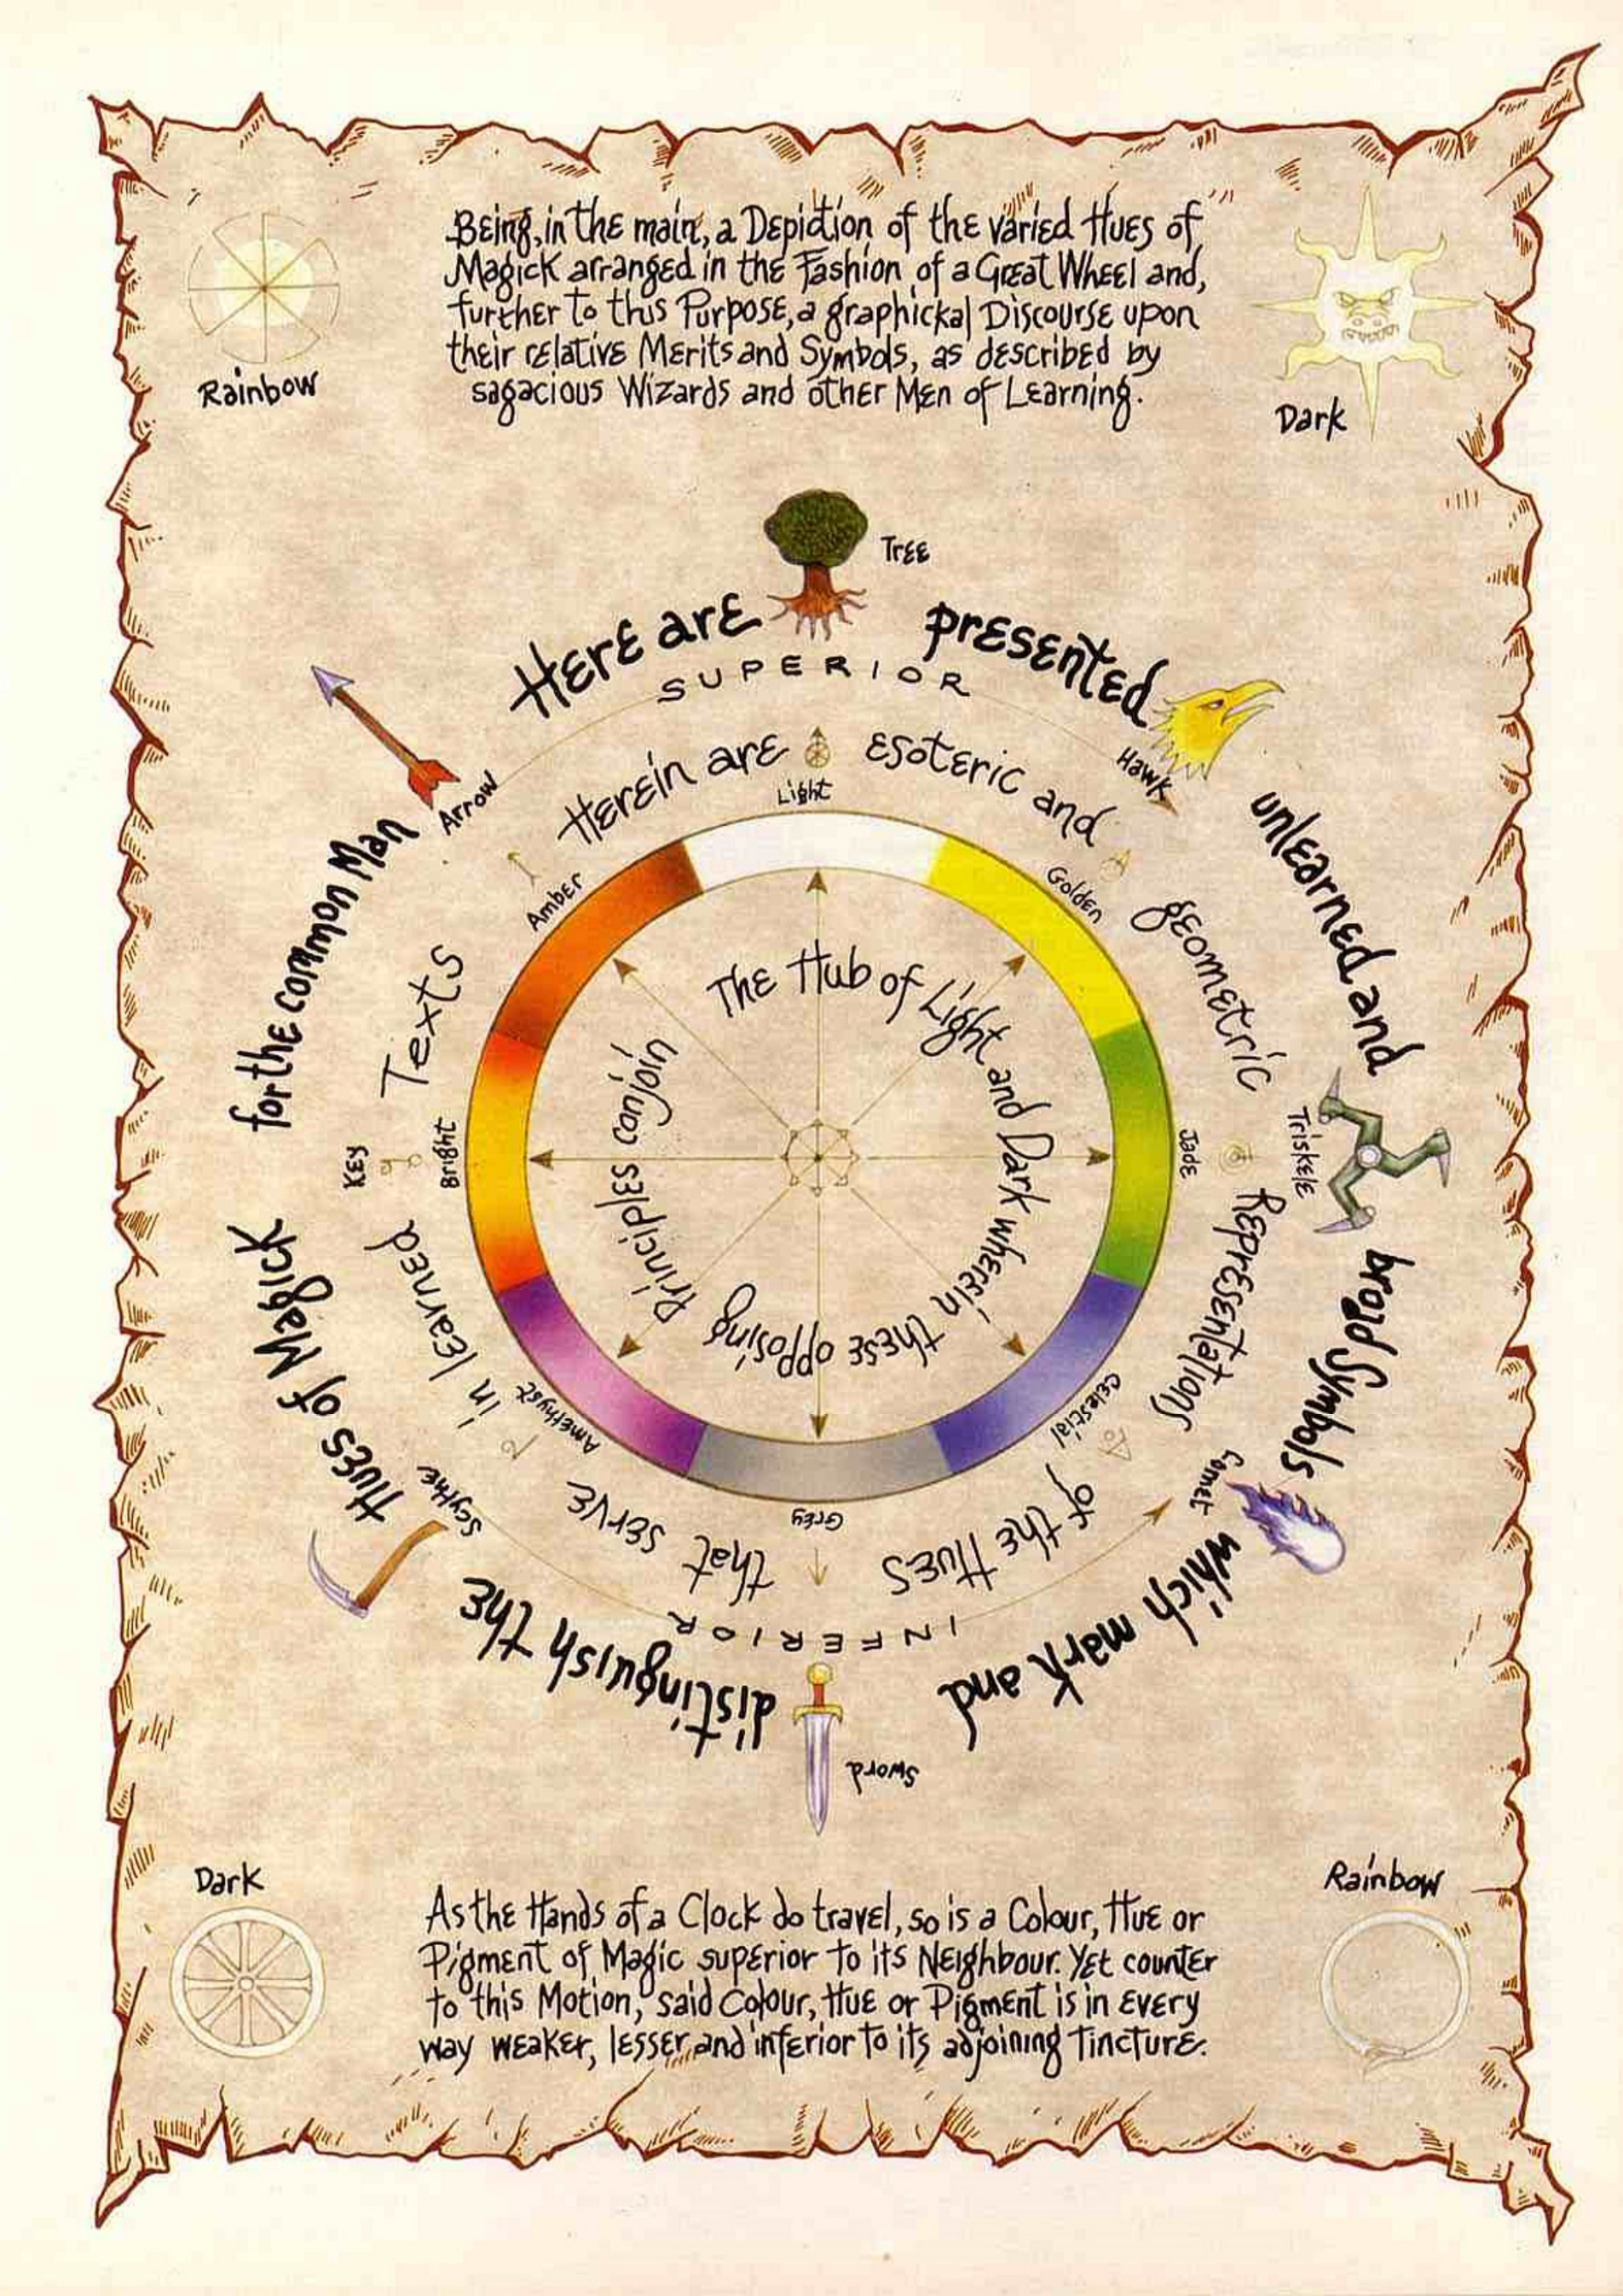 Being, in the main, a Depiction of the varied Hues of
Magick arranged in the Fashion of a Great Wheel and,
further to this Purpose, a graphickal Discourse upon
their relative Merits and Symbols, as described by
sagacious Wizards and other Men of Learning.
Rainbow
Dark
Tree
Here are presented unlearned and broad Symbols which mark and distinguish the Hues of Magick for the common Man
SUPERIOR
Arrow
Hawk
Herein are esoteric and geometric Representations of the Hues that serve in learned Texts
Light
Amber
Golden
The Hub of Light and Dark wherein these opposing Principles conjoin
Key
Bright
Jade
Triskele
Amethyst
Celestial
Scythe
Comet
Grey
INFERIOR
Sword
Dark
Rainbow
As the Hands of a Clock do travel, so is a Colour, Hue or
Pigment of Magic superior to its Neighbour. Yet counter
to this Motion, said Colour, Hue or Pigment is in every
way weaker, lesser and inferior to its adjoining Tincture.